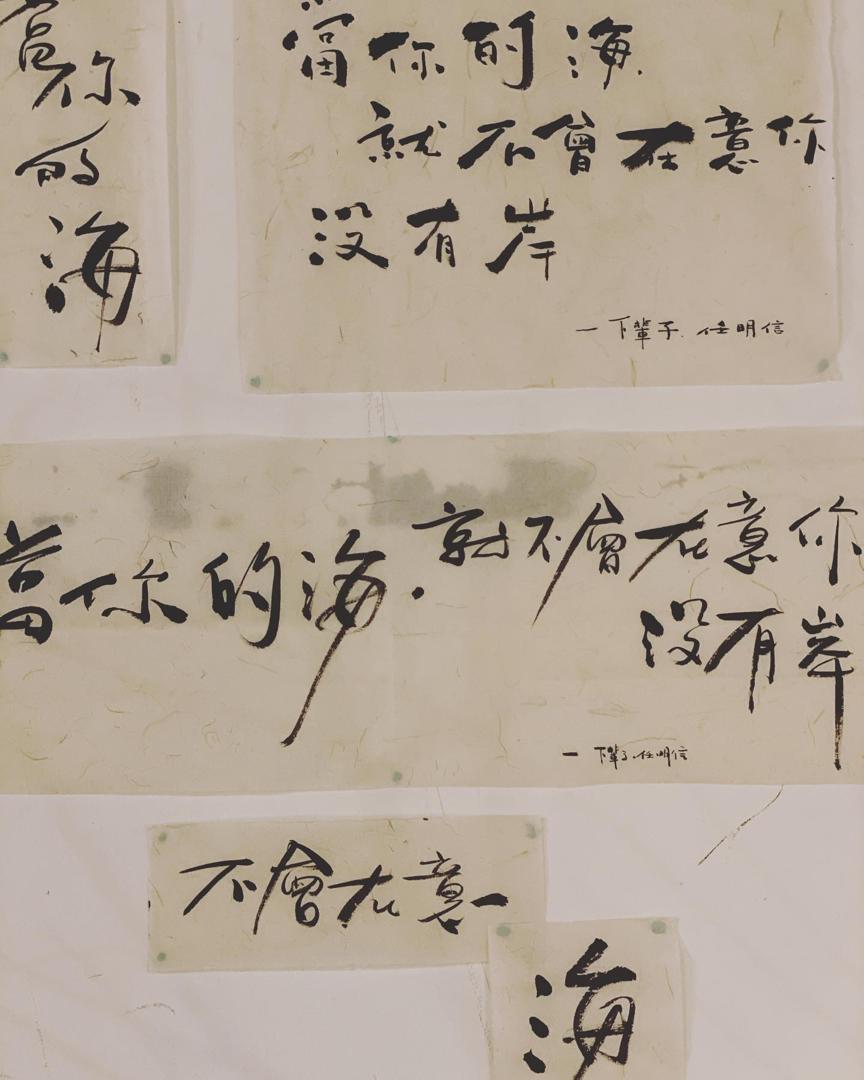 當你
的
海
當你的海.
就不會在意你
没有岸
一下輩子.任明信
當你的海.就不會在意你
没有岸
一下輩子.任明信
不會在意一
海